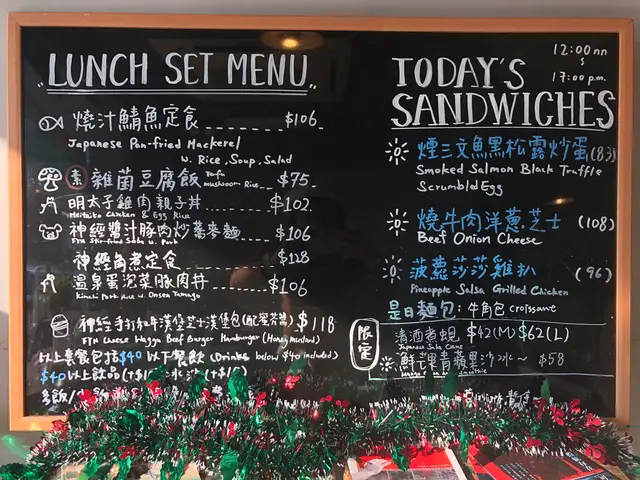 LUNCH SET MENU
燒汁鯖魚定食 $106
Japanese Pan-fried Mackerel
w. Rice, Soup, Salad
素 雜菌豆腐飯 Tofu mushroom Rice $75
明太子雞肉親子丼 $102
Mentaiko Chicken & Egg Rice
神經醬汁豚肉炒蕎麥麵 $106
FTM Stir-fried Soba w. Pork
神經角煮定食 $128
溫泉蛋泡菜豚肉丼 $106
Kimchi Pork Rice w. Onsen Tamago
神經手打和牛漢堡芝士漢堡包 $118
FTM Cheese Wagyu Beef Burger Hamburger (Honey Mustard)
以上套餐包括$40以下餐飲 (Drinks below $40 included)
$40以上飲品
TODAY'S
SANDWICHES
12:00nn
17:00p.m.
煙三文魚黑松露炒蛋 (83)
Smoked Salmon Black Truffle
Scrumbld Egg
燒牛肉洋蔥芝士 (108)
Beef Onion Cheese
菠蘿莎莎雞扒 (96)
Pineapple Salsa Grilled Chicken
是日麵包:牛角包 croissant
限定
清酒煮蜆 $42(M) $62(L)
Japanese Sake Clams
鮮芒果青蘋果沙冰~ $58